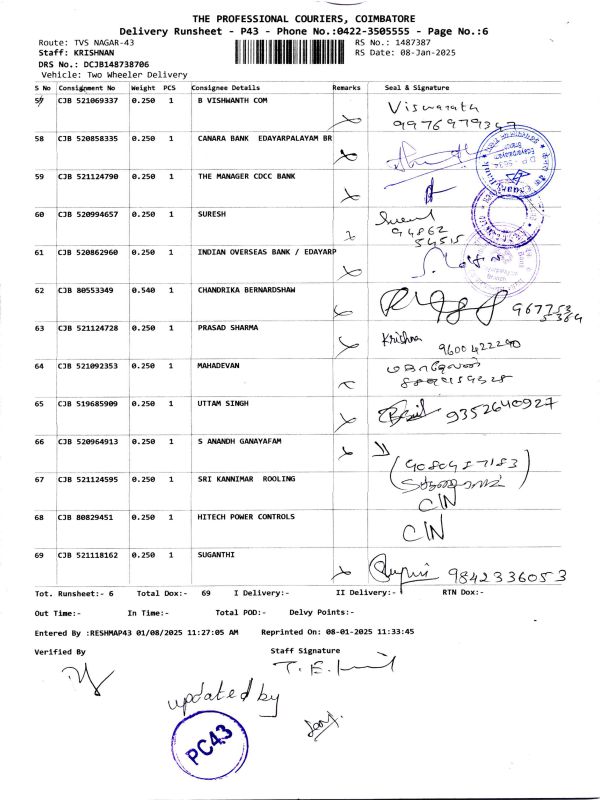 THE PROFESSIONAL COURIERS, COIMBATORE
Delivery Runsheet - P43 - Phone No.:0422-3505555 - Page No.:6
Route: TVS NAGAR-43 RS No.: 1487387
Staff: KRISHNAN RS Date: 08-Jan-2025
DRS No.: DCJB148738706
Vehicle: Two Wheeler Delivery
S No Consignment No Weight PCS Consignee Details Remarks Seal & Signature
57 CJB 521069337 0.250 1 B VISHWANTH COM Viswanath
58 CJB 520858335 0.250 1 CANARA BANK EDAYARPALAYAM BR
59 CJB 521124790 0.250 1 THE MANAGER CDCC BANK
60 CJB 520994657 0.250 1 SURESH 94862
54515
61 CJB 520862960 0.250 1 INDIAN OVERSEAS BANK / EDAYARP
62 CJB 80553349 0.540 1 CHANDRIKA BERNARDSHAW 967753
63 CJB 521124728 0.250 1 PRASAD SHARMA Krishna 9600422290
64 CJB 521092353 0.250 1 MAHADEVAN மகாதேவன்
65 CJB 519685909 0.250 1 UTTAM SINGH 9352640927
66 CJB 520964913 0.250 1 S ANANDH GANAYAFAM
67 CJB 521124595 0.250 1 SRI KANNIMAR ROOLING CIN
68 CJB 80829451 0.250 1 HITECH POWER CONTROLS CIN
69 CJB 521118162 0.250 1 SUGANTHI 9842336053
Tot. Runsheet:- 6 Total Dox:- 69 I Delivery:- II Delivery:- RTN Dox:-
Out Time:- In Time:- Total POD:- Delvy Points:-
Entered By :RESHMAP43 01/08/2025 11:27:05 AM Reprinted On: 08-01-2025 11:33:45
Verified By Staff Signature
updated by
PC43